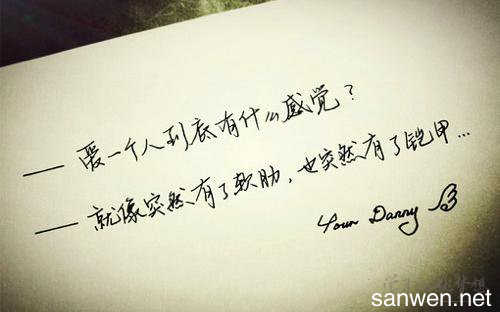 —— 爱一个人到底有什么感觉？
—— 就像突然有了软肋，也突然有了铠甲…
Your Danny
sanwen.net